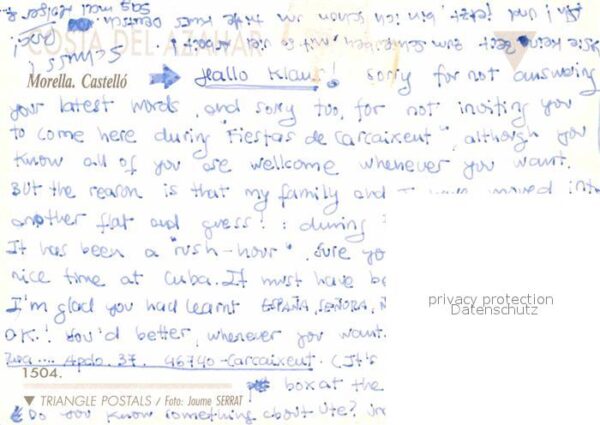 COSTA DEL AZAHAR
Morella. Castelló
Hallo Klaus! Sorry for not answering
your latest words, and sorry too, for not inviting you
to come here during "Fiestas de Carcaixent", although you
know all of you are wellcome whenever you want.
But the reason is that my family and I have moved into
another flat and guess!: during
It has been a "rush-hour". Sure yo
nice time at Cuba. It must have be
I'm glad you had learnt ESPAÑA, SEÑORA, Ñ
O.K.! You'd better, whenever you want.
Apdo. 37. 46740-Carcaixent. (It's
1504.
box at the
▼ TRIANGLE POSTALS / Foto: Jaume SERRAT
Do you know something about Ute?
privacy protection
Datenschutz
keine Zeit zum schreiben, mit so viel Arbeit!
und jetzt! bin ich schon am
Deutsch
Sag mal
Schuss!